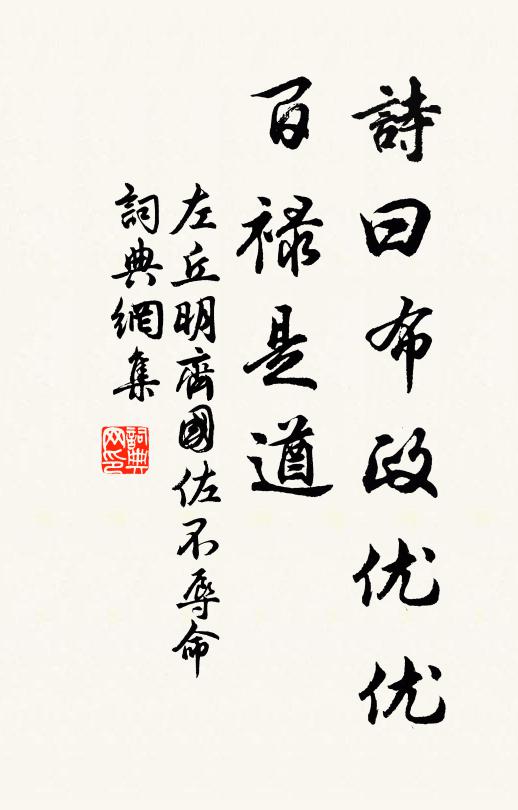 詩曰布政优优
百祿是遒
左丘明齊國佐不辱命
詞典網集
詞典
网印